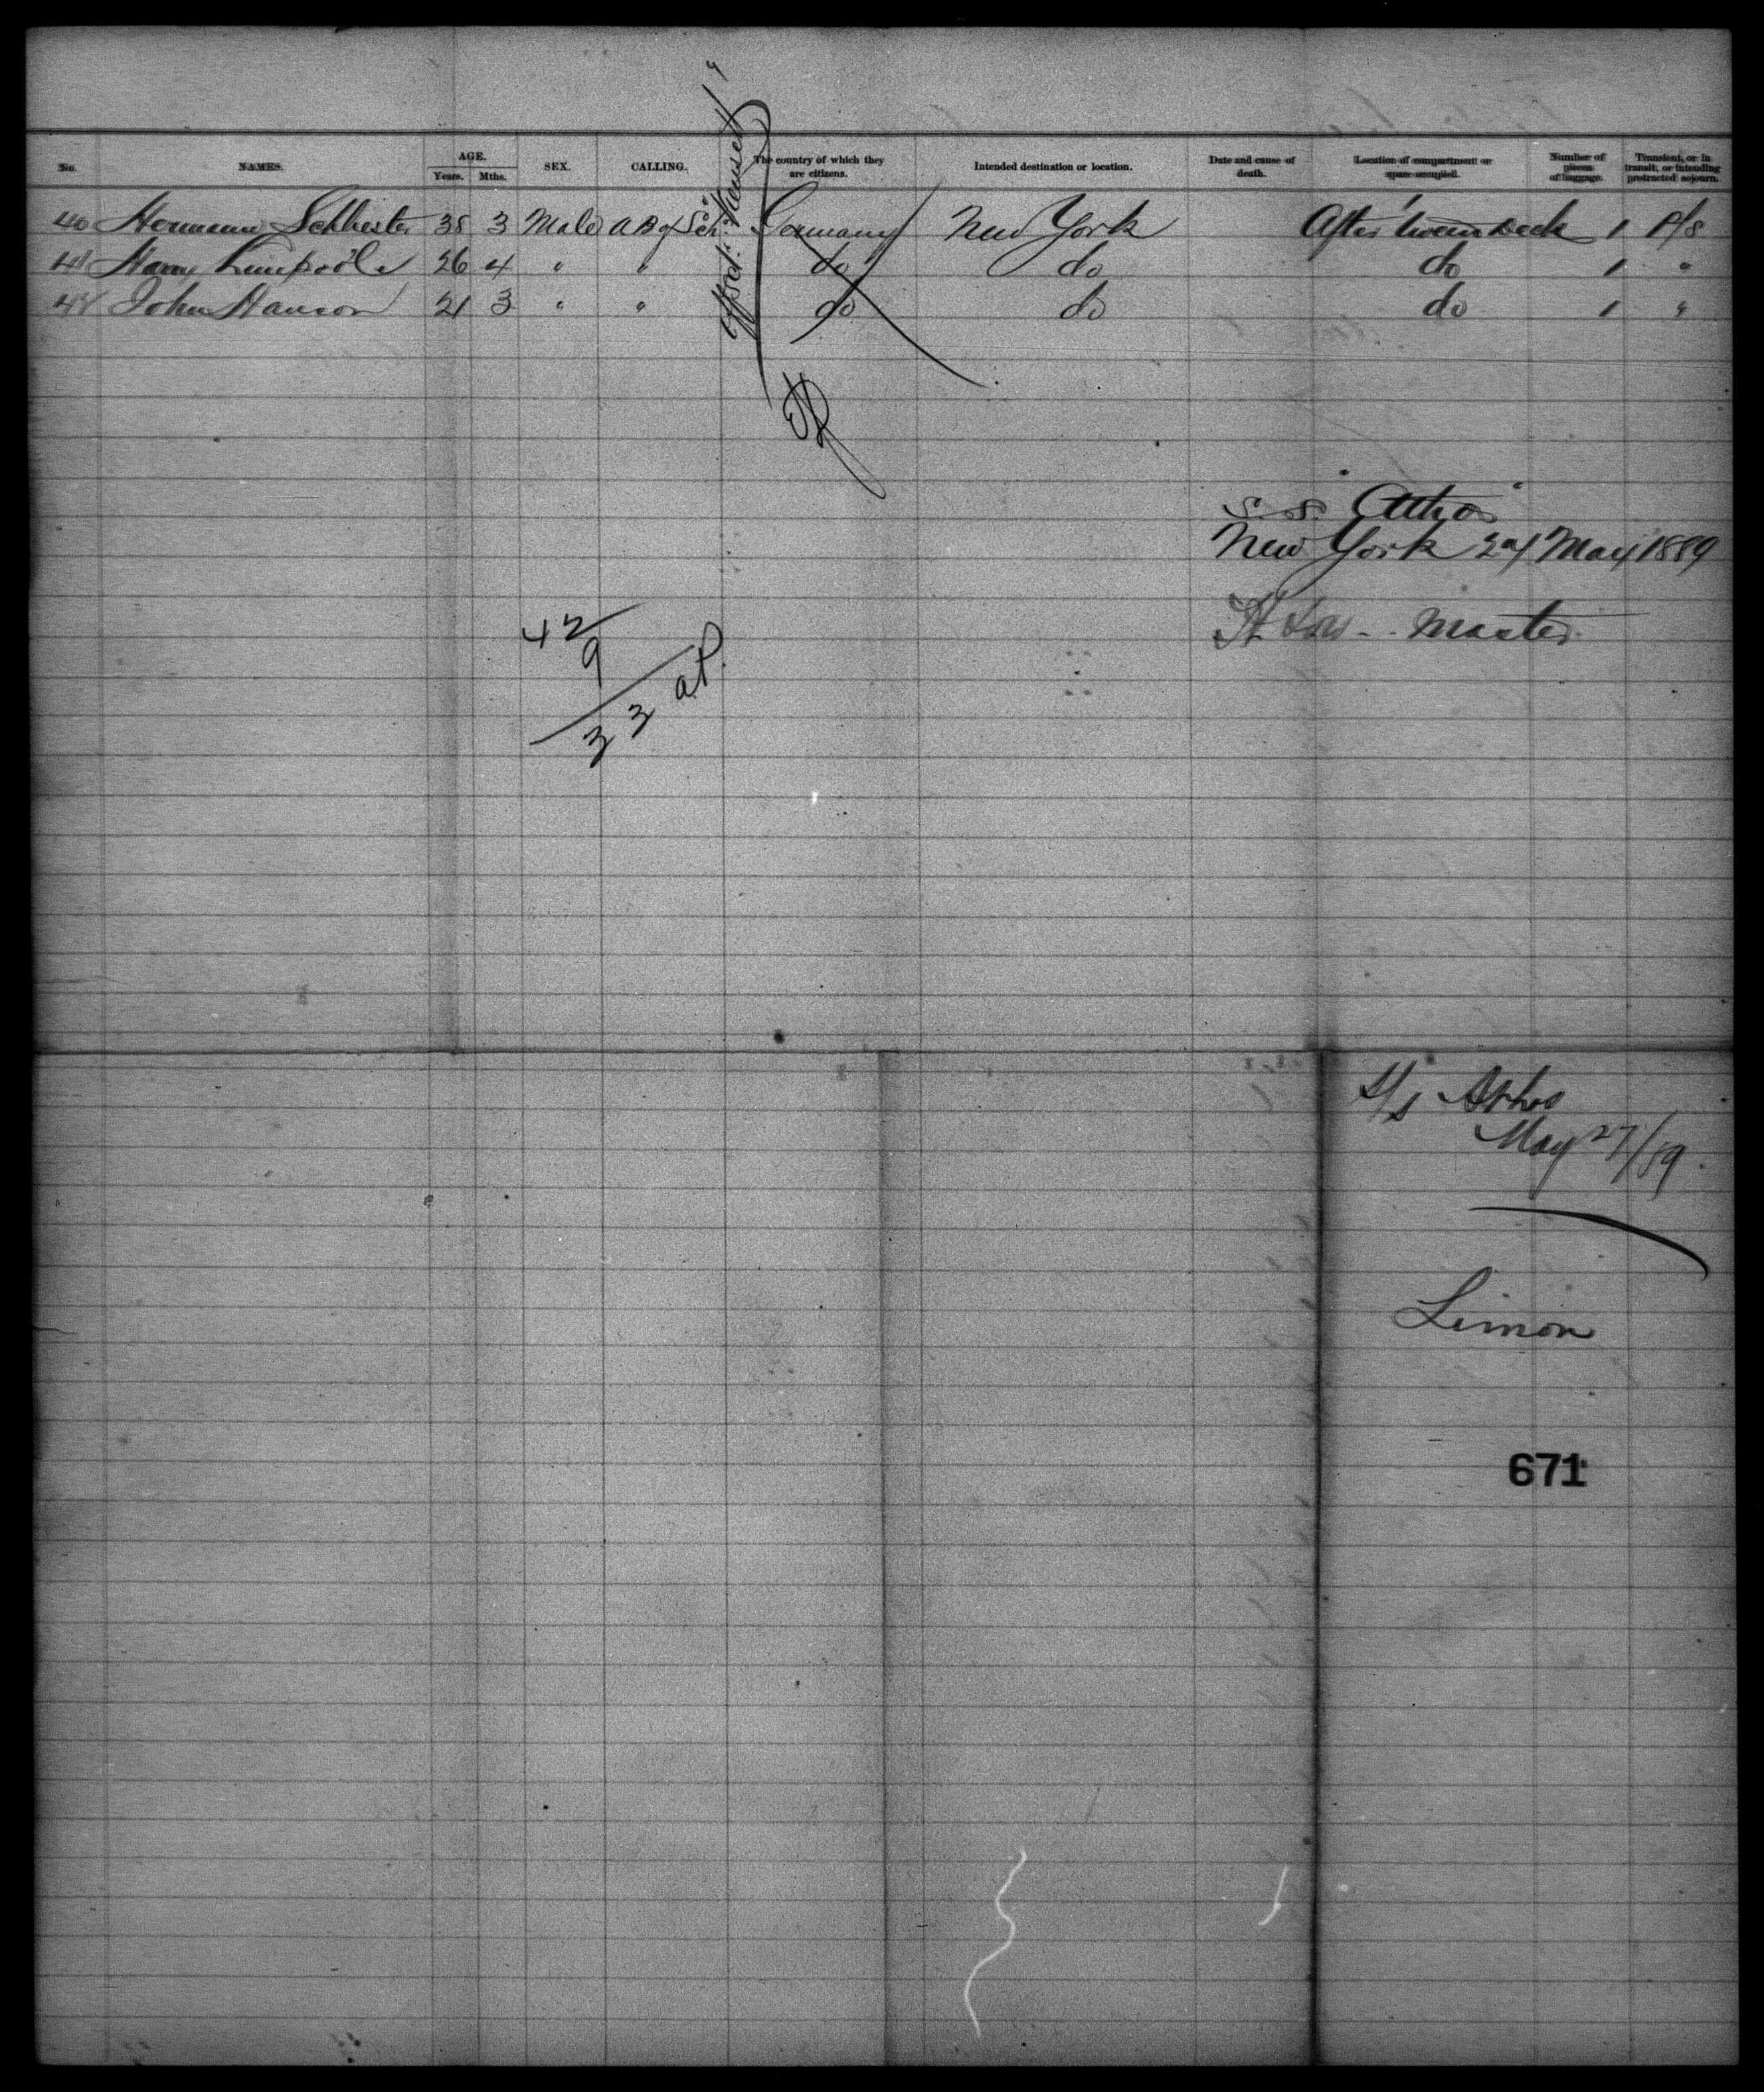 No. NAMES. AGE. Years. Mths. SEX. CALLING. The country of which they are citizens. Intended destination or location. Date and cause of death. Location of compartment or space occupied. Number of pieces of baggage. Transient, or in transit, or intending protracted sojourn.
40 Hermann 38 3 Male A B of Sch. Germany New York After tween Deck 1 P/s
41 Harry 26 4 " " do do do 1 "
42 John Hanson 21 3 " " do do do 1 "
S. S. "Athos"
New York 27 May 1889
Master
42
9
33 al.
S/S Athos
May 27/89
Limon
671